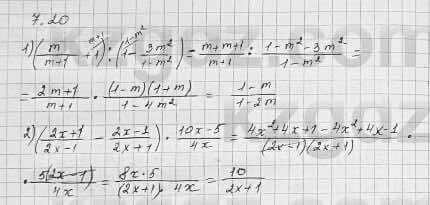 7.20
1) (m/(m+1) + 1^(m+1)) : (1^(1-m²) - 3m²/(1-m²)) = (m+m+1)/(m+1) : (1-m²-3m²)/(1-m²) =
= (2m+1)/(m+1) · ((1-m)(1+m))/(1-4m²) = (1-m)/(1-2m)
2) ((2x+1)/(2x-1) - (2x-1)/(2x+1)) · (10x-5)/4x = (4x²+4x+1-4x²+4x-1)/((2x-1)(2x+1)) ·
· 5(2x-1)/4x = (8x·5)/((2x+1)·4x) = 10/(2x+1)